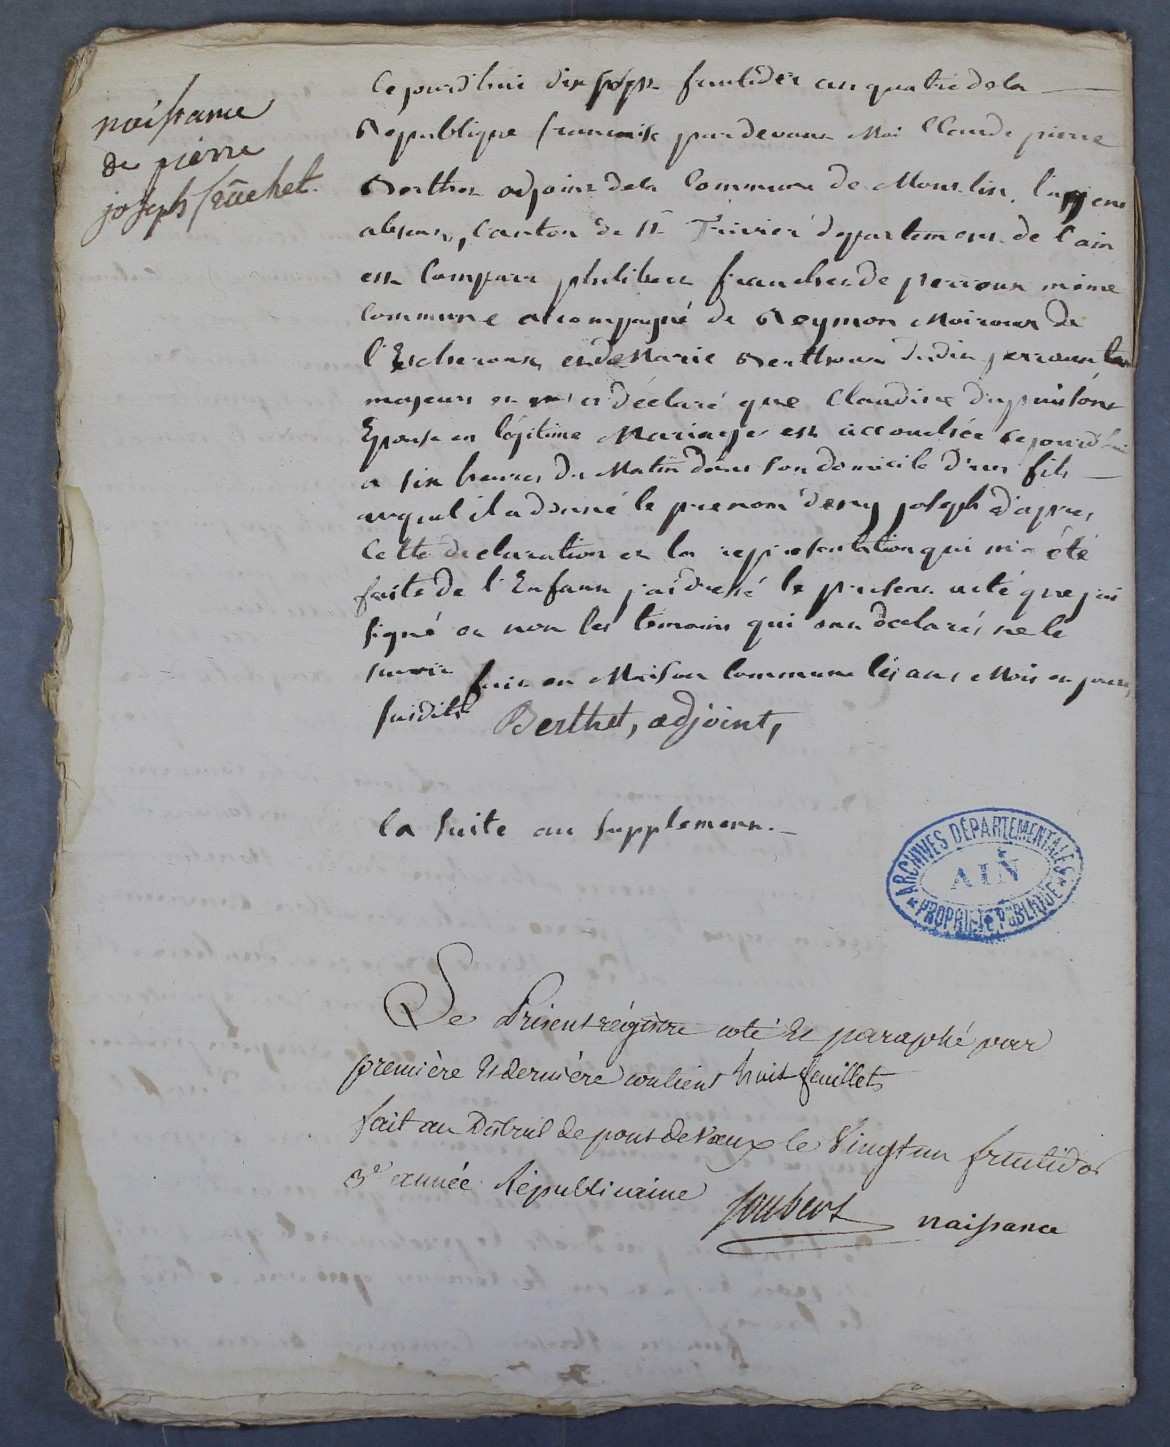 naissance
de pierre
joseph fràchet.
Ce jourd'hui dix sept fructidor an quatre de la
Republique francaise pardevant Moi Claude pierre
Berthet adjoint de la Commune de Mouslin, l'agent
absent, Canton de St Trivier departement de l'ain
est Comparu philibert franchet de perroux même
Commune accompagné de Reymon Moiroux de
l'Escheroux et de Marie Berthoux dudit perroux tous
majeurs et m'a déclaré que Claudine
Epouse en légitime Mariage est accouchée ce jourd'hui
a six heures du Matin dans son domicile d'un fils
auquel il a donné le prenom de joseph d'apres
Cette declaration et la representation qui m'a été
faite de l'Enfant j'ai dressé le present acte que j'ai
signé et non les temoins qui ont declarés ne le
savoir fait en Maison Commune les ans Mois et jours
susdits Berthet, adjoint,
la suite au supplement.
ARCHIVES DÉPARTEMENTALES
AIN
PROPRIÉTÉ PUBLIQUE
Le Présent régistre coté et paraphé par
première et dernière contient huit feuillets
fait au District de pont de Vaux le Vingt un fructidor
3e année Républicaine Joubert naissance